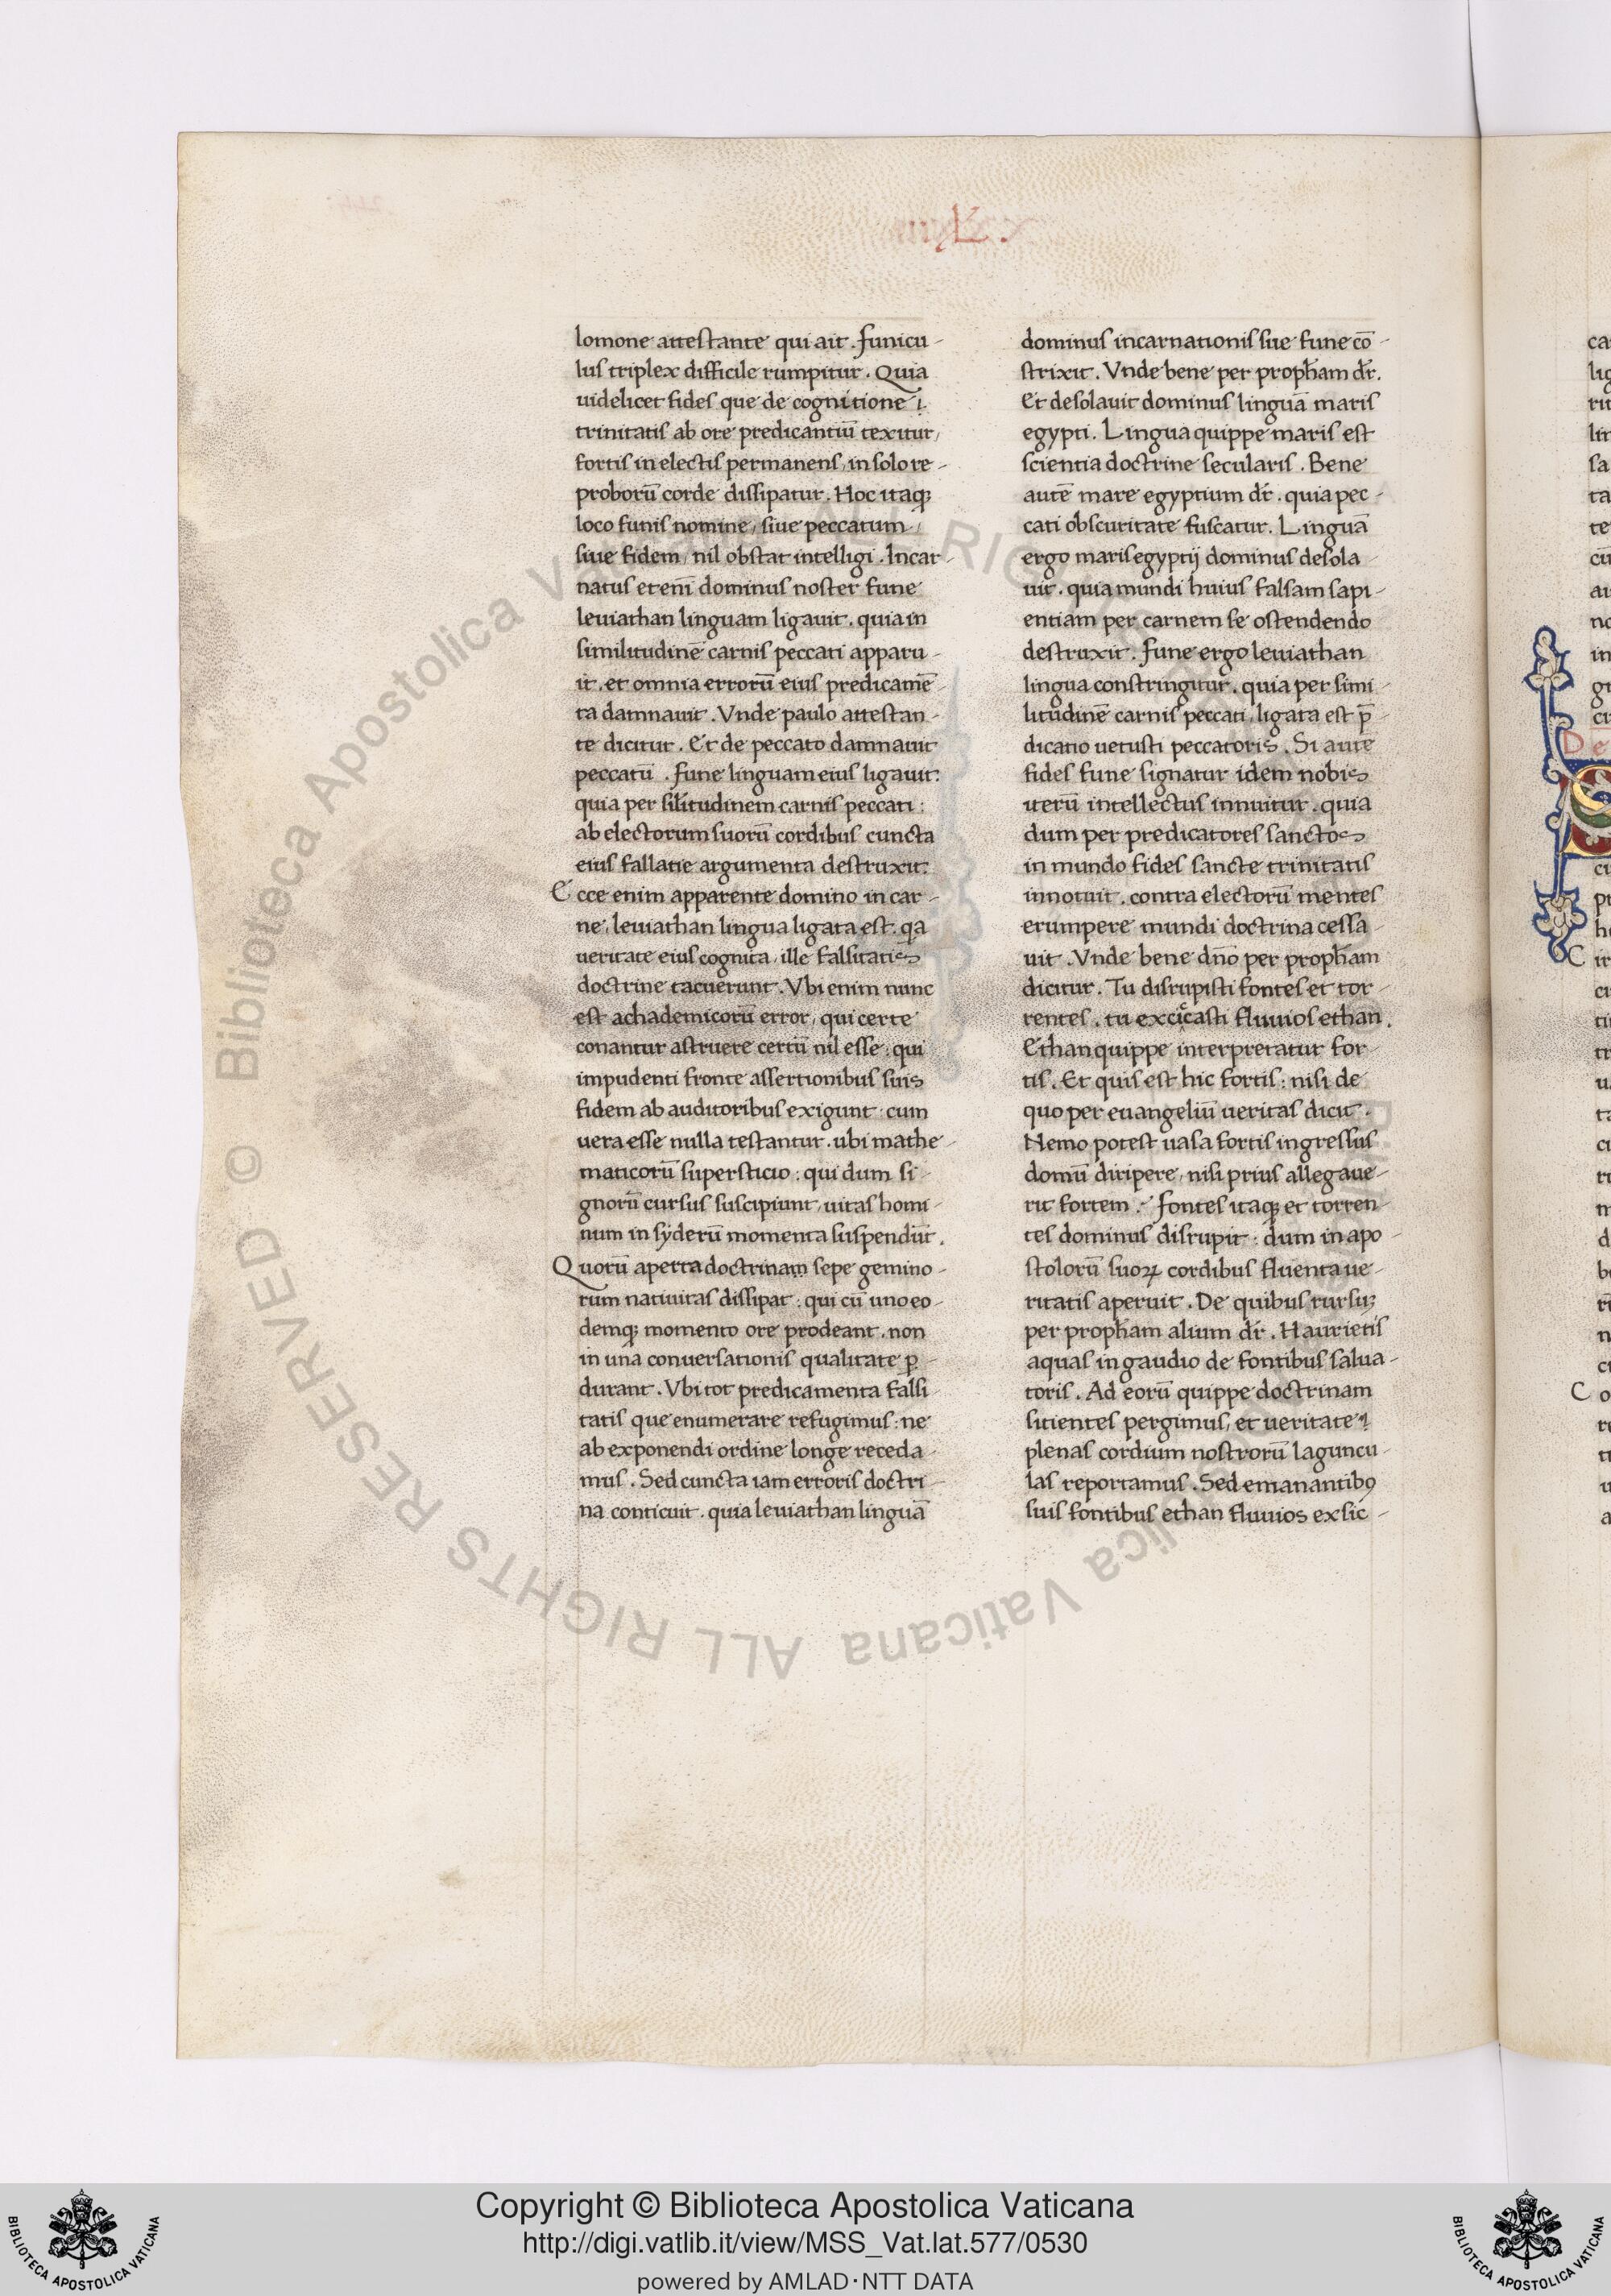 lomone attestante qui ait . funicu-
lus triplex difficile rumpitur . Quia
uidelicet fides que de cognitione
trinitatis ab ore predicantiū texitur,
fortis in electis permanens, in solo re-
proborū corde dissipatur . Hoc itaqꝫ
loco funis nomine, siue peccatum,
siue fidem, nil obstat intelligi . Incar-
natus etenī dominus noster fune
leuiathan linguam ligauit . quia in
similitudinē carnis peccati apparu-
it . et omnia errorū eius predicamē-
ta damnauit . Vnde paulo attestan-
te dicitur . Et de peccato damnauit
peccatū . fune linguam eius ligauit:
quia per sil̄itudinem carnis peccati :
ab electorum suorū cordibus cuncta
eius fallatie argumenta destruxit.
Ecce enim apparente domino in car-
ne, leuiathan lingua ligata est . qa
ueritate eius cognita, ille falsitatis
doctrine tacuerunt . Vbi enim nunc
est achademicorū error, qui certe
conantur astruere certū nil esse : qui
impudenti fronte assertionibus suis
fidem ab auditoribus exigunt : cum
uera esse nulla testantur . ubi mathe-
maticorū supersticio : qui dum si-
gnorū cursus suscipiunt, uitas homi-
num in syderū momenta suspendūt .
Quorū aperta doctrinam sepe gemino-
rum natiuitas dissipat : qui cū uno eo-
demqꝫ momento ore prodeant . non
in una conuersationis qualitate ꝑ-
durant . Vbi tot predicamenta falsi-
tatis que enumerare refugimus : ne
ab exponendi ordine longe receda-
mus . Sed cuncta iam erroris doctri-
na conticuit . quia leuiathan linguā
dominus incarnationis sue fune cō-
strixit . Vnde bene per proph̄am dr̄.
Et desolauit dominus linguā maris
egypti . Lingua quippe maris est
scientia doctrine secularis . Bene
autē mare egyptium dr̄ . quia pec-
cati obscuritate fuscatur . Linguā
ergo maris egyptij dominus desola-
uit . quia mundi huius falsam sapi-
entiam per carnem se ostendendo
destruxit . fune ergo leuiathan
lingua constringitur . quia per simi-
litudinē carnis peccati, ligata est p̄-
dicatio uetusti peccatoris . Si autē
fides fune signatur idem nobis
iterū intellectus innuitur . quia
dum per predicatores sanctos
in mundo fides sancte trinitatis
innotuit . contra electorū mentes
erumpere mundi doctrina cessa-
uit . Vnde bene dn̄o per proph̄am
dicitur . Tu disrupisti fontes et tor-
rentes . tu exciccasti fluuios ethan .
Ethan quippe interpretatur for-
tis . Et quis est hic fortis : nisi de
quo per euangeliū ueritas dicit .
Nemo potest uasa fortis ingressus
domū diripere, nisi prius allegaue-
rit fortem . fontes itaqꝫ et torren-
tes dominus disrupit : dum in apo-
stolorū suoꝝ cordibus fluenta ue-
ritatis aperuit . De quibus rursuꝫ
per proph̄am alium dr̄ . Haurietis
aquas in gaudio de fontibus salua-
toris . Ad eorū quippe doctrinam
sitientes pergimus, et ueritate
plenas cordium nostrorū laguncu-
las reportamus . Sed emanantibꝰ
suis fontibus ethan fluuios exsic-
Copyright © Biblioteca Apostolica Vaticana
http://digi.vatlib.it/view/MSS_Vat.lat.577/0530
powered by AMLAD·NTT DATA